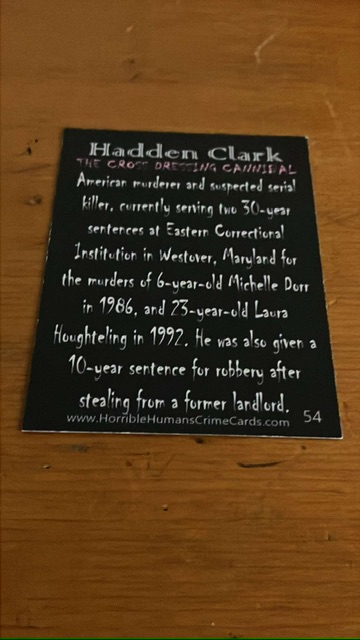 Hadden Clark
THE CROSS DRESSING CANNIBAL
American murderer and suspected serial
killer, currently serving two 30-year
sentences at Eastern Correctional
Institution in Westover, Maryland for
the murders of 6-year-old Michelle Dorr
in 1986, and 23-year-old Laura
Houghteling in 1992. He was also given a
10-year sentence for robbery after
stealing from a former landlord.
www.HorribleHumansCrimeCards.com 54